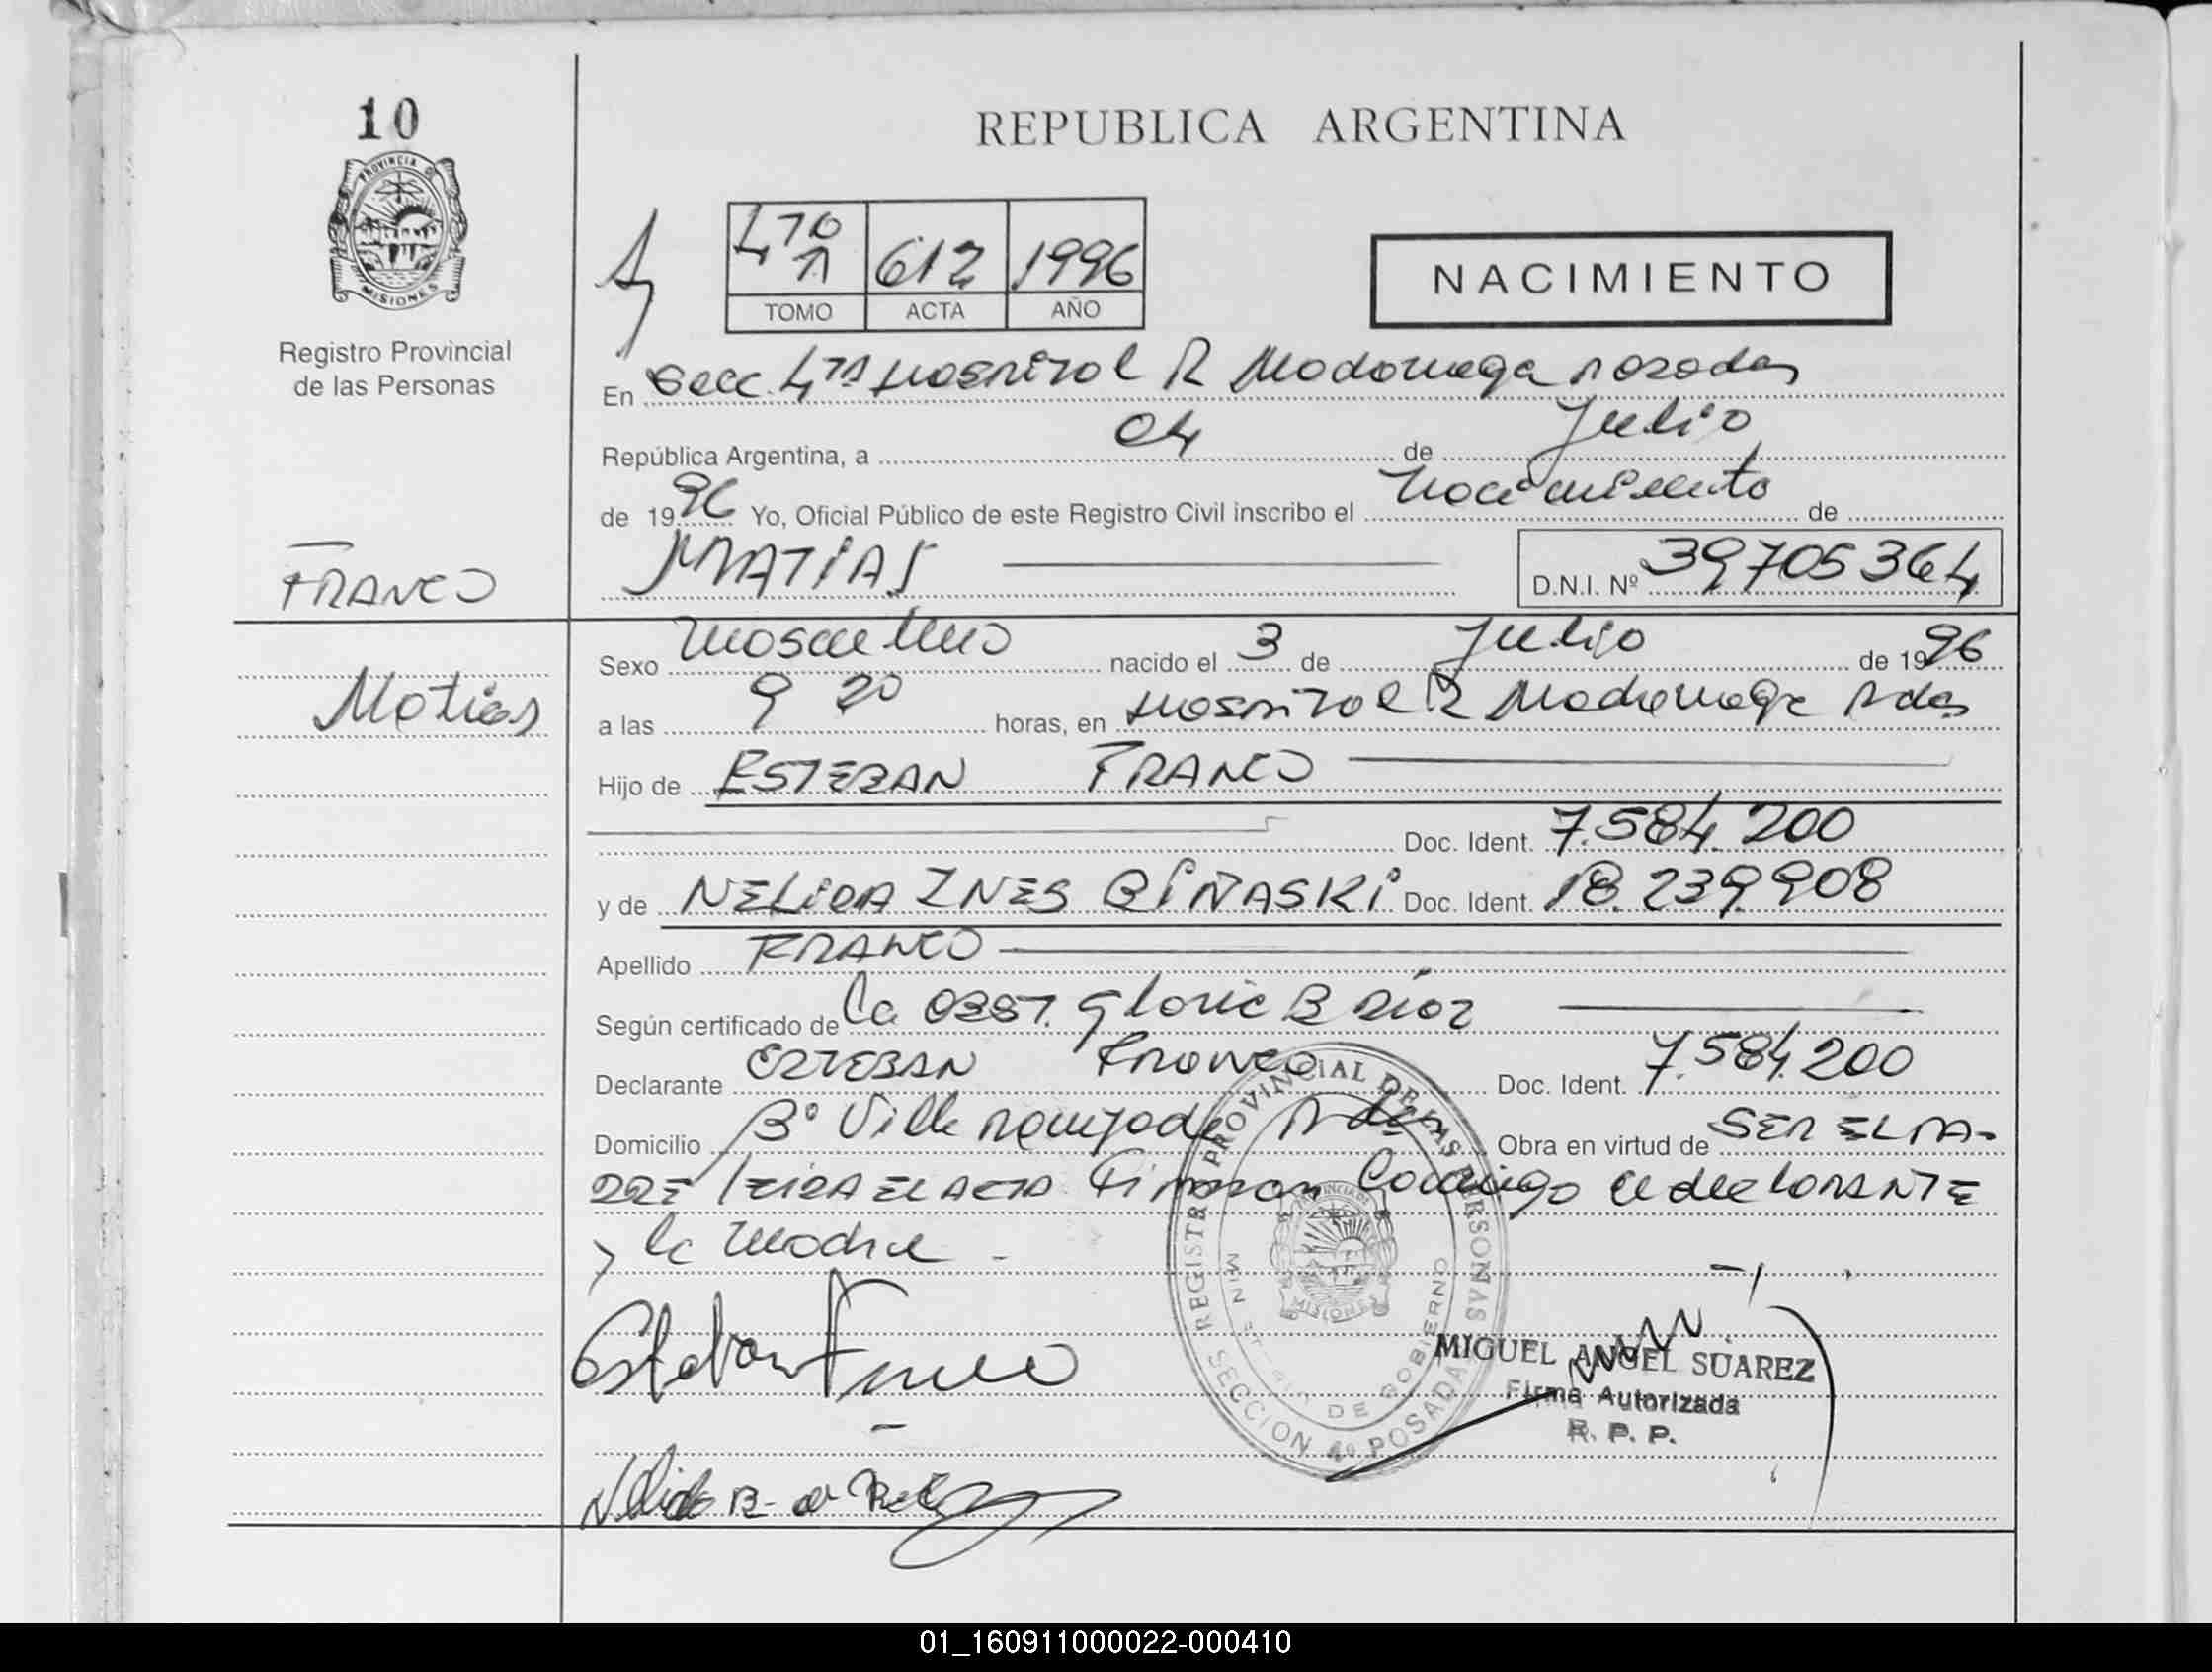 10
PROVINCIA D
MISIONES
Registro Provincial
de las Personas
FRANCO
Matias
REPUBLICA ARGENTINA
612 1996
TOMO ACTA AÑO
NACIMIENTO
En Secc. 4ta Hospital R Madariaga Posadas
República Argentina, a 04 de Julio
de 1996 Yo, Oficial Público de este Registro Civil inscribo el Nacimiento de
MATIAS D.N.I. Nº 39705364
Sexo Masculino nacido el 3 de Julio de 1996
a las 9 20 horas, en Hospital R Madariaga Pdas
Hijo de ESTEBAN FRANCO
Doc. Ident. 7.584.200
y de NELIDA INES BIÑASKI Doc. Ident. 18.239.908
Apellido FRANCO
Según certificado de La OBST. Gloria B Diaz
Declarante ESTEBAN Franco Doc. Ident. 7.584.200
Domicilio B° Villa Pdas Obra en virtud de SER EL PA-
DRE LEIDA EL ACTA Firman Conmigo el decLARANTE
y la Madre -
Esteban Franco
REGISTRO PROVINCIAL DE LAS PERSONAS
DE GOBIERNO
MISIONES
SECCION 4º POSADAS
MIGUEL ANGEL SUAREZ
Firma Autorizada
R. P. P.
01_160911000022-000410